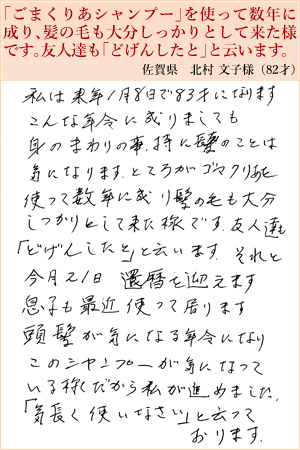 「ごまくりあシャンプー」を使って数年に
成り、髪の毛も大分しっかりとして来た様
です。友人達も「どげんしたと」と云います。
佐賀県　北村 文子様（82才）
私は来年1月8日で83才になります
こんな年令に成りましても
身のまわりの事、特に髪のことは
気になります。ところがゴマクリアを
使って数年に成り髪の毛も大分
しっかりとして来た様です。友人達も
「どげんしたと」と云います。それと
今月21日 還暦を迎えます
息子も最近使って居ります
頭髪が気になる年令になり
このシャンプーが気になって
いる様だから私が進めました。
「気長く使いなさい」と云って
おります。